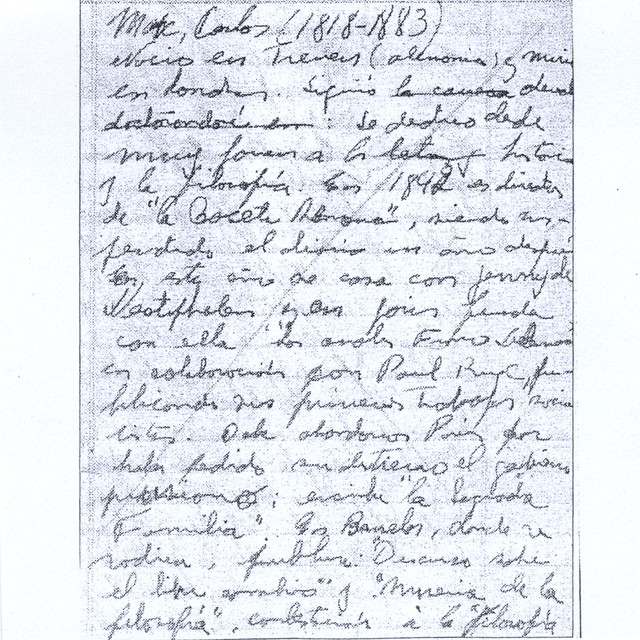 Marx, Carlos (1818-1883)
Nacio en Treveris (alemania) y murio
en Londres. Siguió la causa
Se dedico desde
muy joven a las letras y historia
y la filosofía. En 1842 es director
de "la Gaceta Renana", siendo sus-
pendido el diario un año después
En este año se casa con Jenny de
Westphalen y en Paris funda
con ella "Los anales Franco
en colaboración con Paul Ruge, pu-
blicando sus primeros trabajos socia
listas. Debe abandonar Paris por
haber pedido su destierro el gobierno
prusiano; escribe "la Sagrada
Familia". En Bruselas, donde se
radica, publica: "Discurso sobre
el libre cambio" y "Miseria de la
filosofía", contestación a la "filosofía